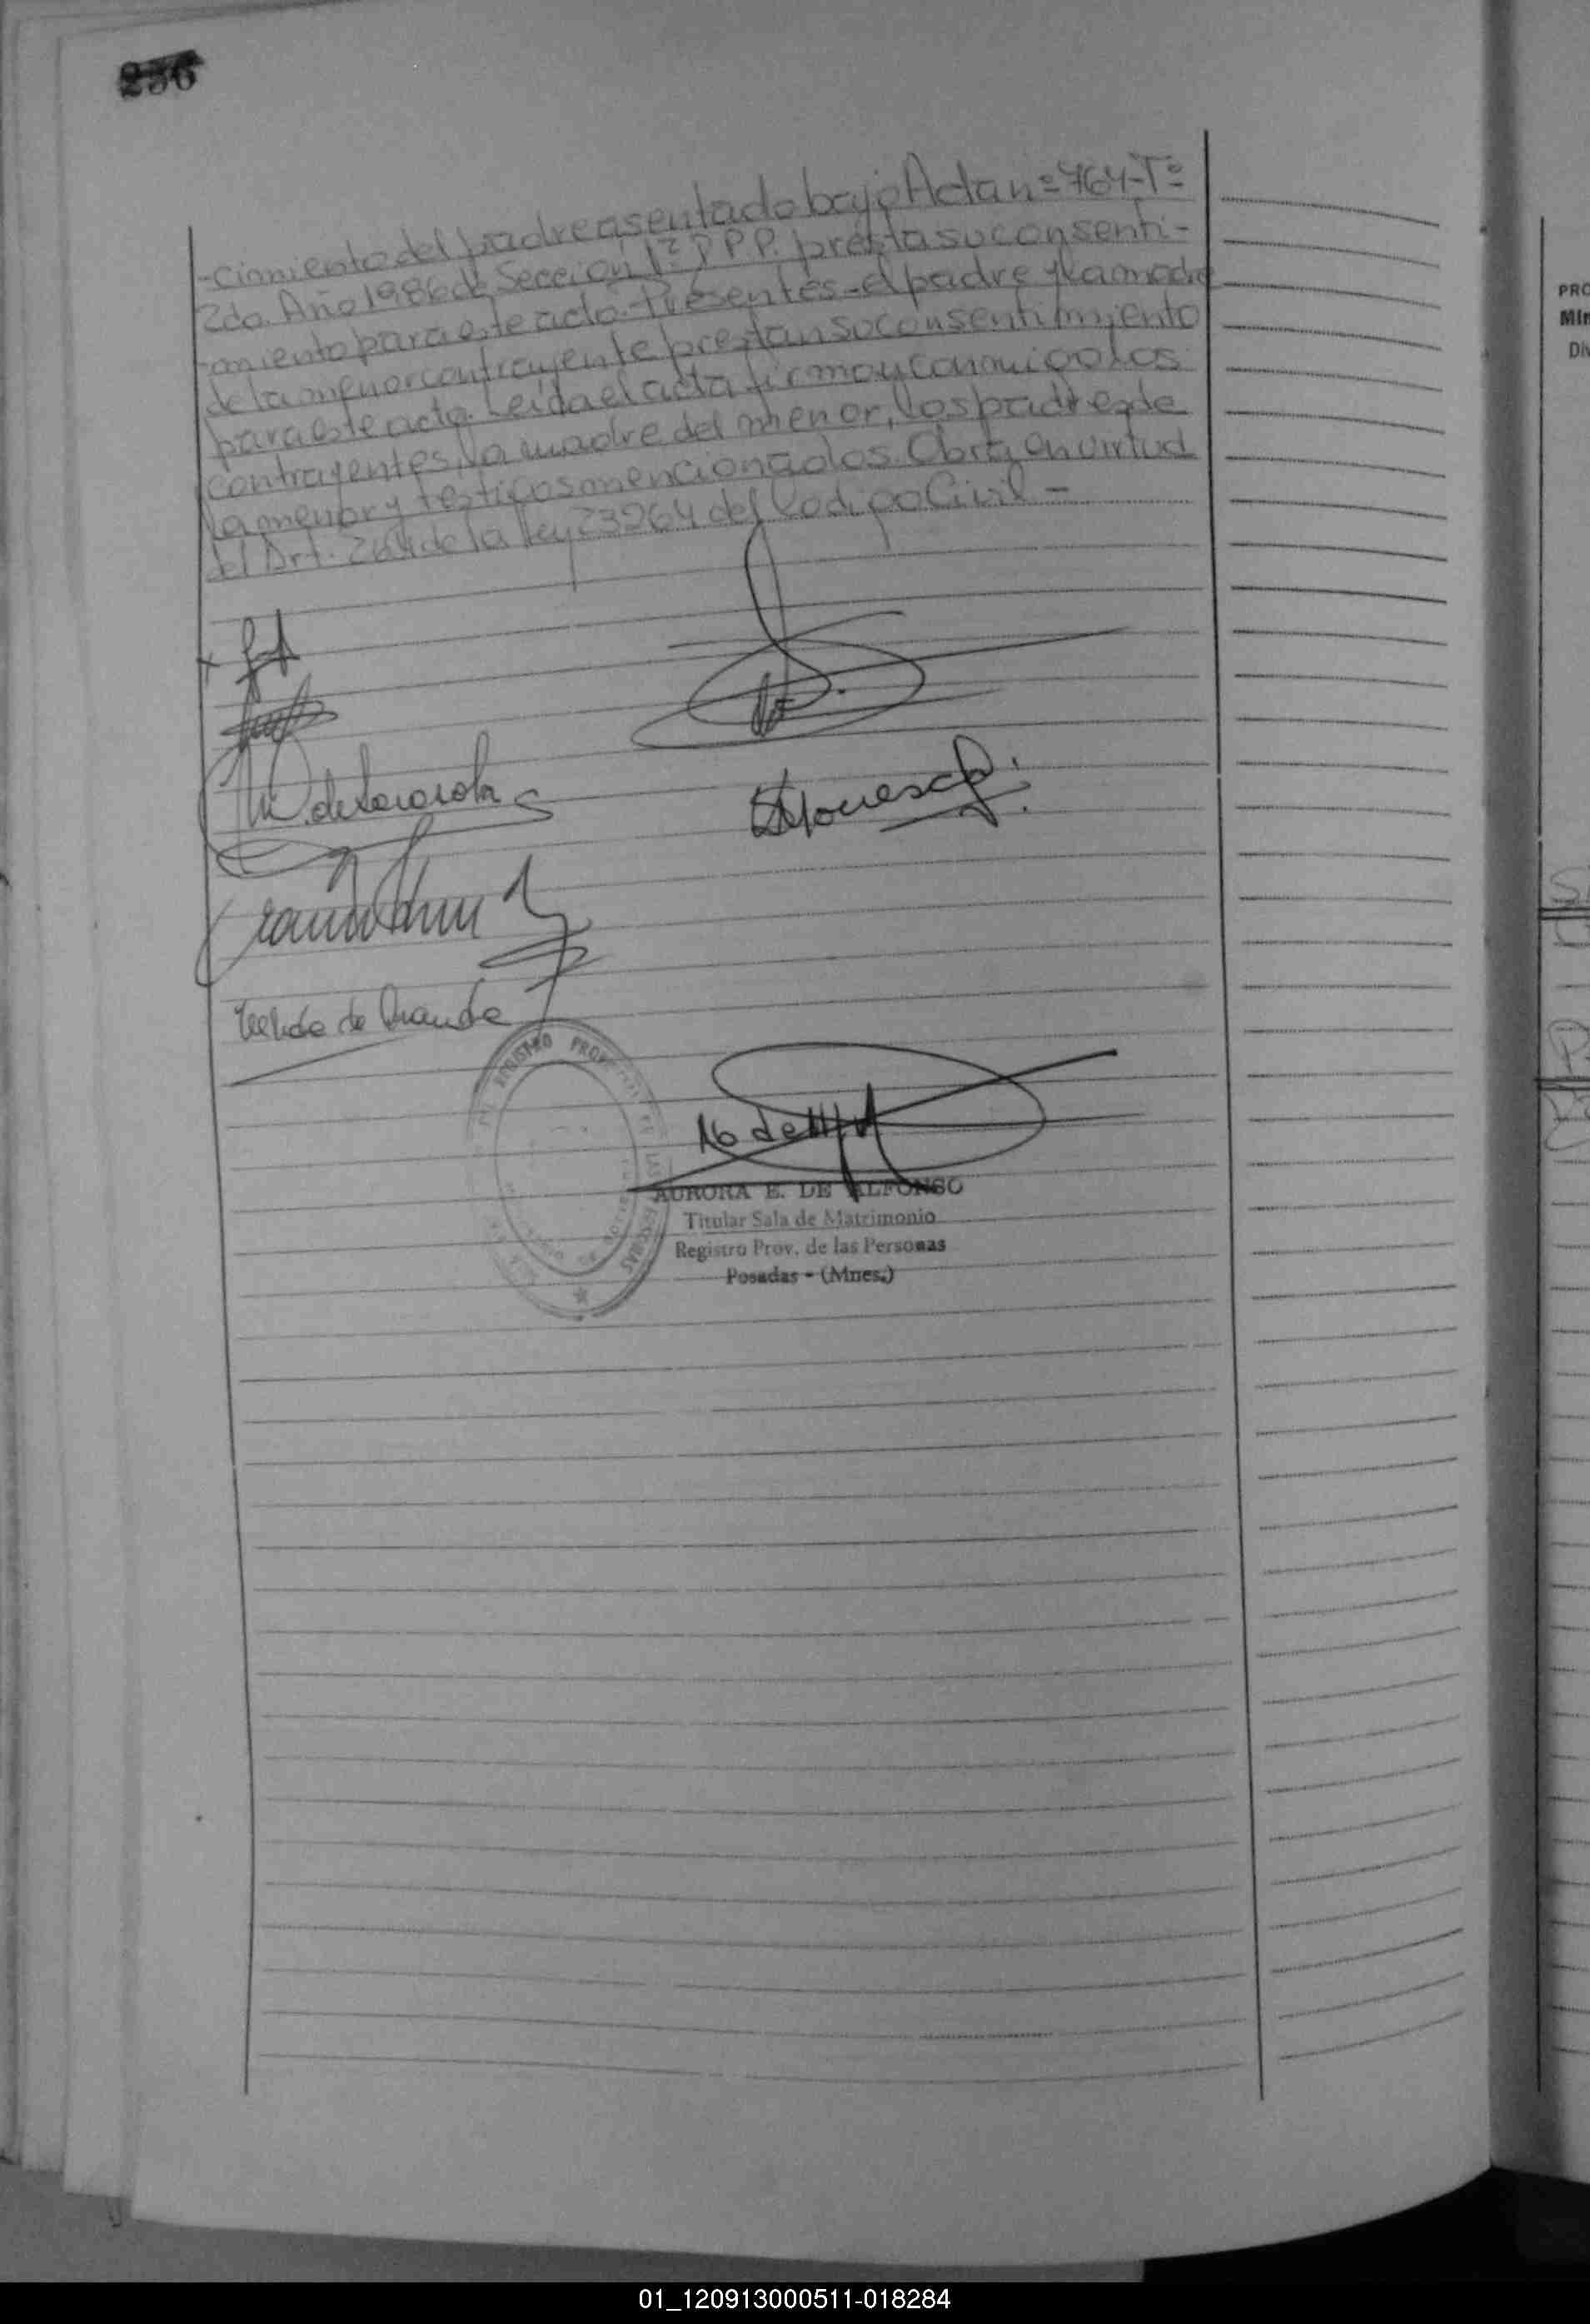 256
-cimiento del padre asentado bajo Acta nº 764-Tº
2do. Año 1986 de Sección 1ª P.P. presta su consenti-
-miento para este acto. Presentes - el padre y la madre
de la menor contrayente prestan su consentimiento
para este acto. Leída el acta firman conmigo los
contrayentes, la madre del menor, los padres de
la menor y testigos mencionados. Obra en virtud
del Art. 264 de la ley 23264 del Codigo Civil -
REGISTRO PROV
DE LAS PERSONAS
AURORA E. DE ALFONSO
Titular Sala de Matrimonio
Registro Prov. de las Personas
Posadas - (Mnes.)
PRO
Min
Div
01_120913000511-018284